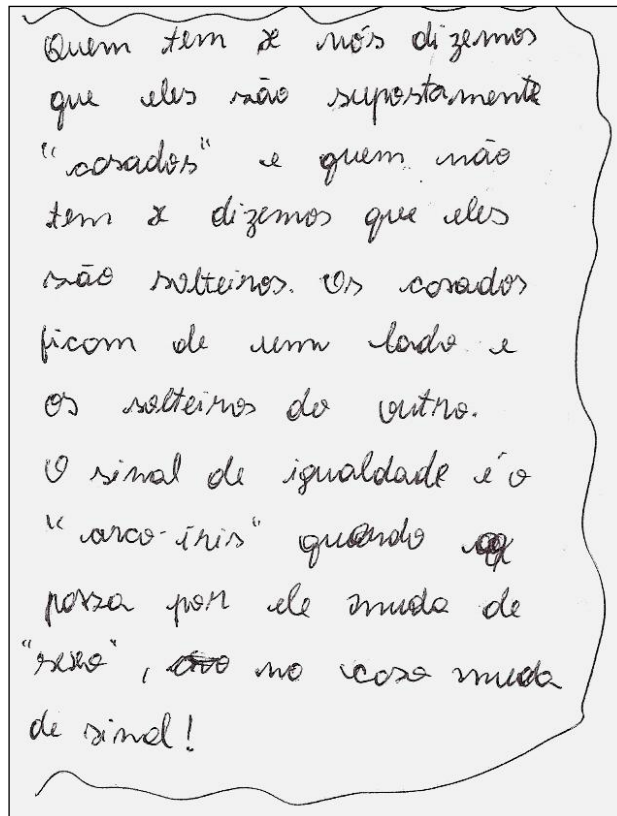 Quem tem x nós dizemos
que eles são supostamente
"casados" e quem não
tem x dizemos que eles
são solteiros. Os casados
ficam de um lado e
os solteiros do outro.
O sinal de igualdade é o
"arco-íris" quando
passa por ele muda de
"sexo", no caso muda
de sinal!